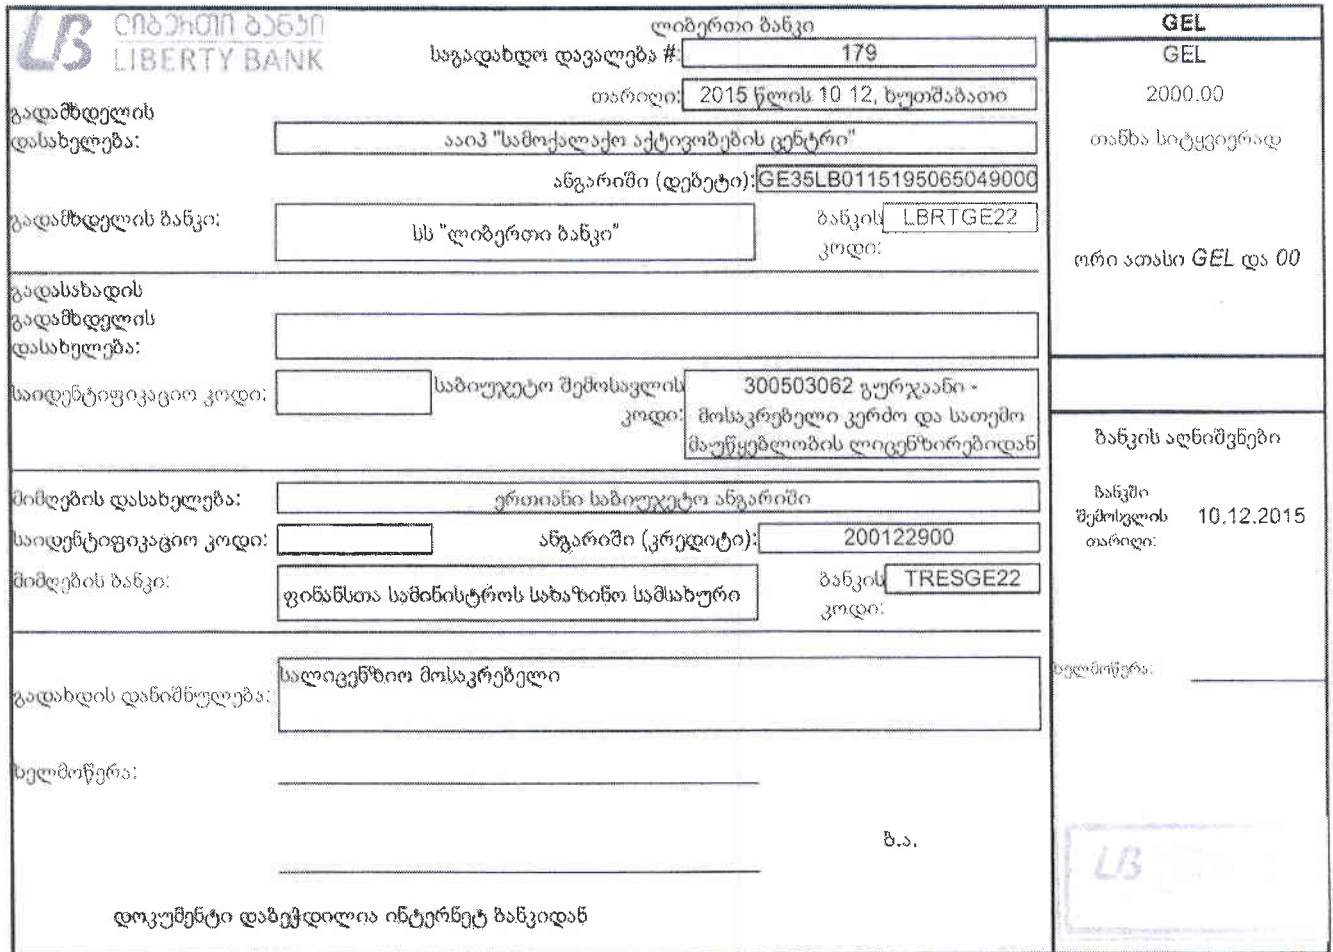 ლიბერთი ბანკი
LIBERTY BANK
ლიბერთი ბანკი
საგადახდო დავალება #: 179
თარიღი: 2015 წლის 10 12, ხუთშაბათი
გადამხდელის
დასახელება: ააიპ "სამოქალაქო აქტივობების ცენტრი"
ანგარიში (დებეტი): GE35LB0115195065049000
გადამხდელის ბანკი: სს "ლიბერთი ბანკი" ბანკის LBRTGE22
კოდი:
გადასახადის
გადამხდელის
დასახელება:
საიდენტიფიკაციო კოდი: საბიუჯეტო შემოსავლის 300503062 გურჯაანი -
კოდი: მოსაკრებელი კერძო და სათემო
მაუწყებლობის ლიცენზირებიდან
მიმღების დასახელება: ერთიანი საბიუჯეტო ანგარიში
საიდენტიფიკაციო კოდი: ანგარიში (კრედიტი): 200122900
მიმღების ბანკი: ფინანსთა სამინისტროს სახაზინო სამსახური ბანკის TRESGE22
კოდი:
გადახდის დანიშნულება: სალიცენზიო მოსაკრებელი
ხელმოწერა:
ბ.ა.
დოკუმენტი დაბეჭდილია ინტერნეტ ბანკიდან
GEL
GEL
2000.00
თანხა სიტყვიერად
ორი ათასი GEL და 00
ბანკის აღნიშვნები
ბანკში
შემოსვლის 10.12.2015
თარიღი:
ხელმოწერა:
LB